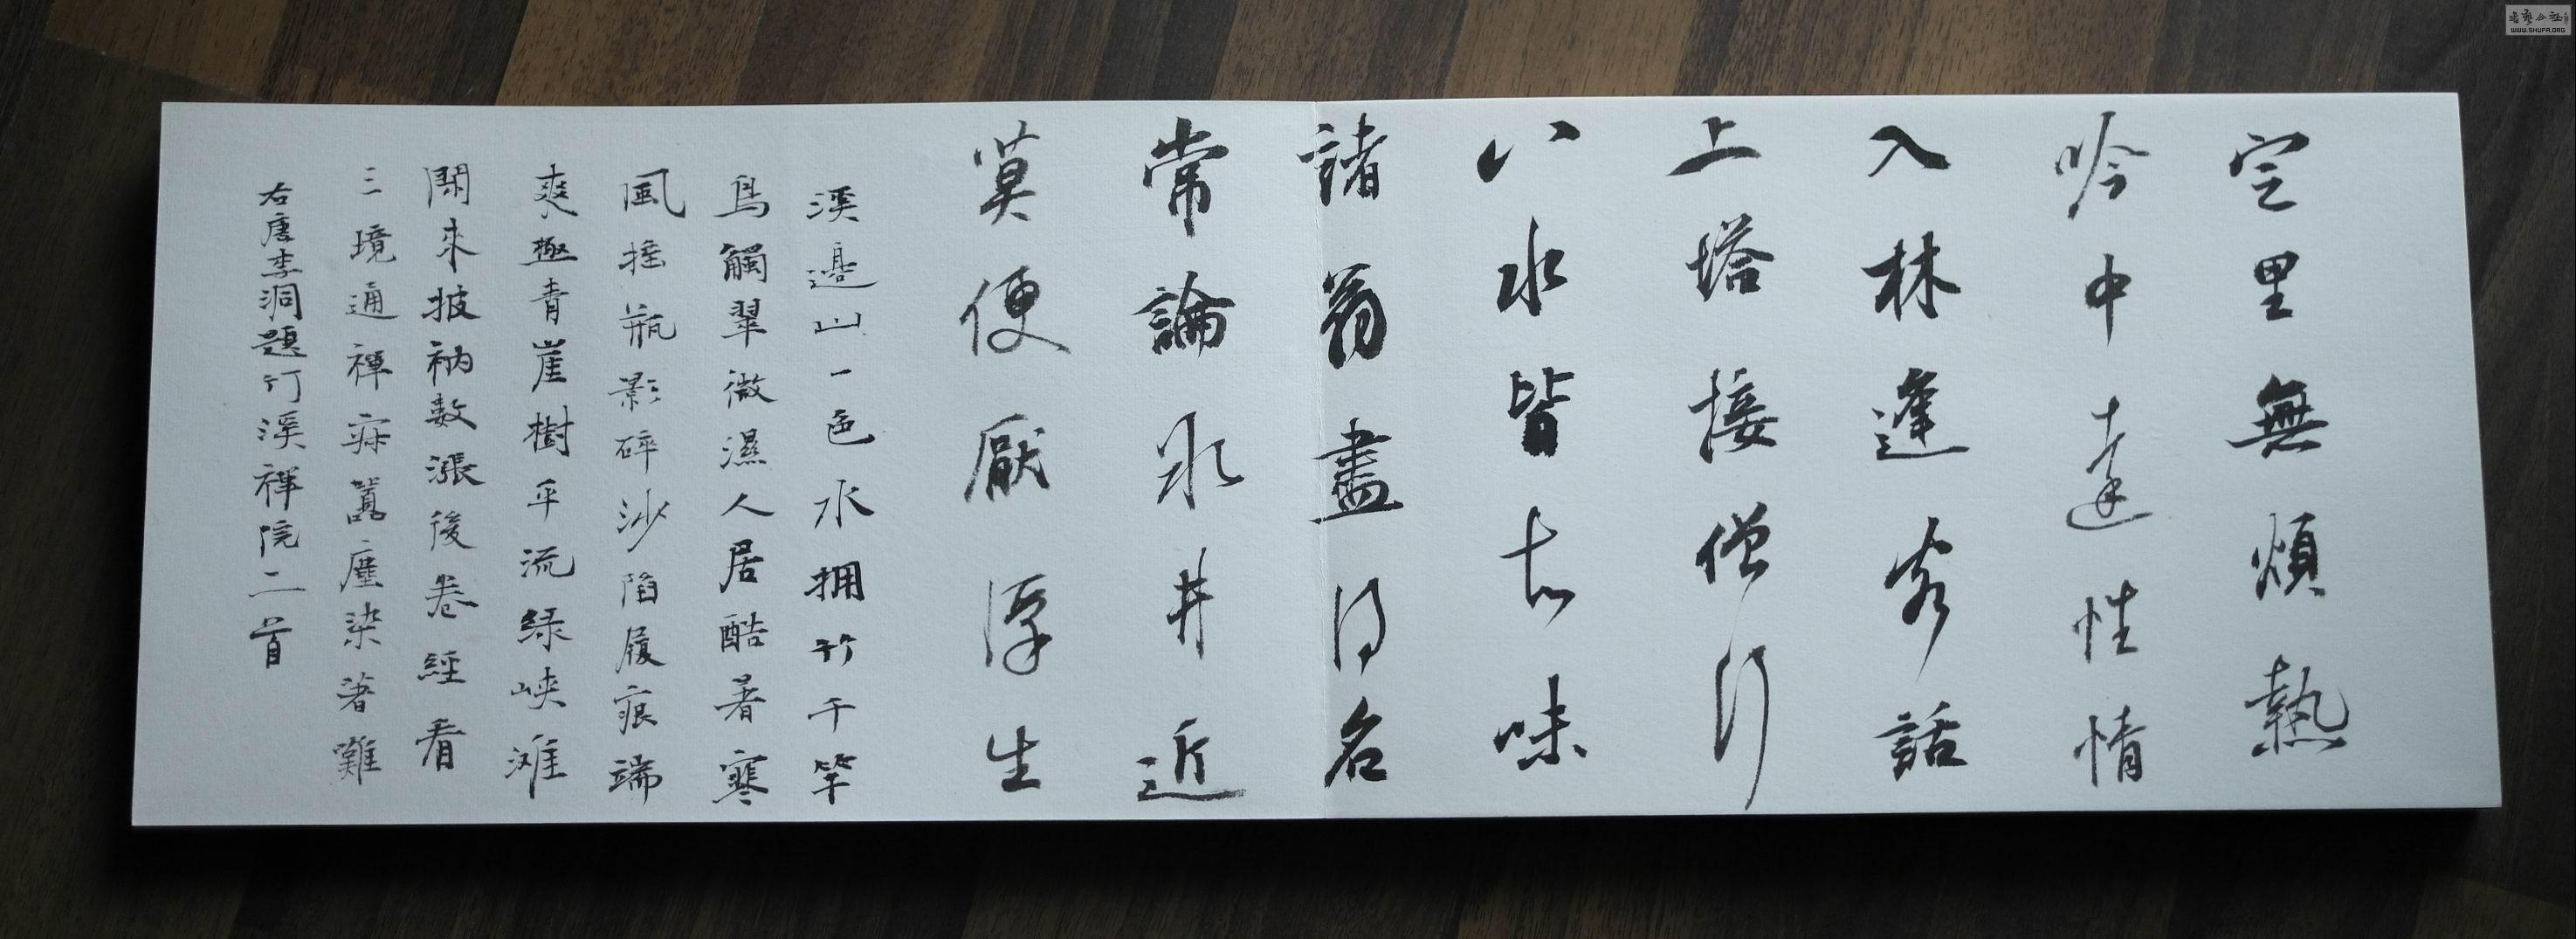 定里無煩熱
吟中達性情
入林逢客話
上塔接僧行
八水皆知味
諸翁盡得名
常論冰井近
莫便厭浮生
溪邊山一色水拥竹千竿
鳥觸翠微濕人居酷暑寒
風摇瓶影碎沙陷履痕端
爽極青崖樹平流緑峡滩
閑來披衲數漲後卷經看
三境通禪寂囂塵染著難
右唐李洞題竹溪禪院二首
书艺公社
WWW.SHUFA.ORG